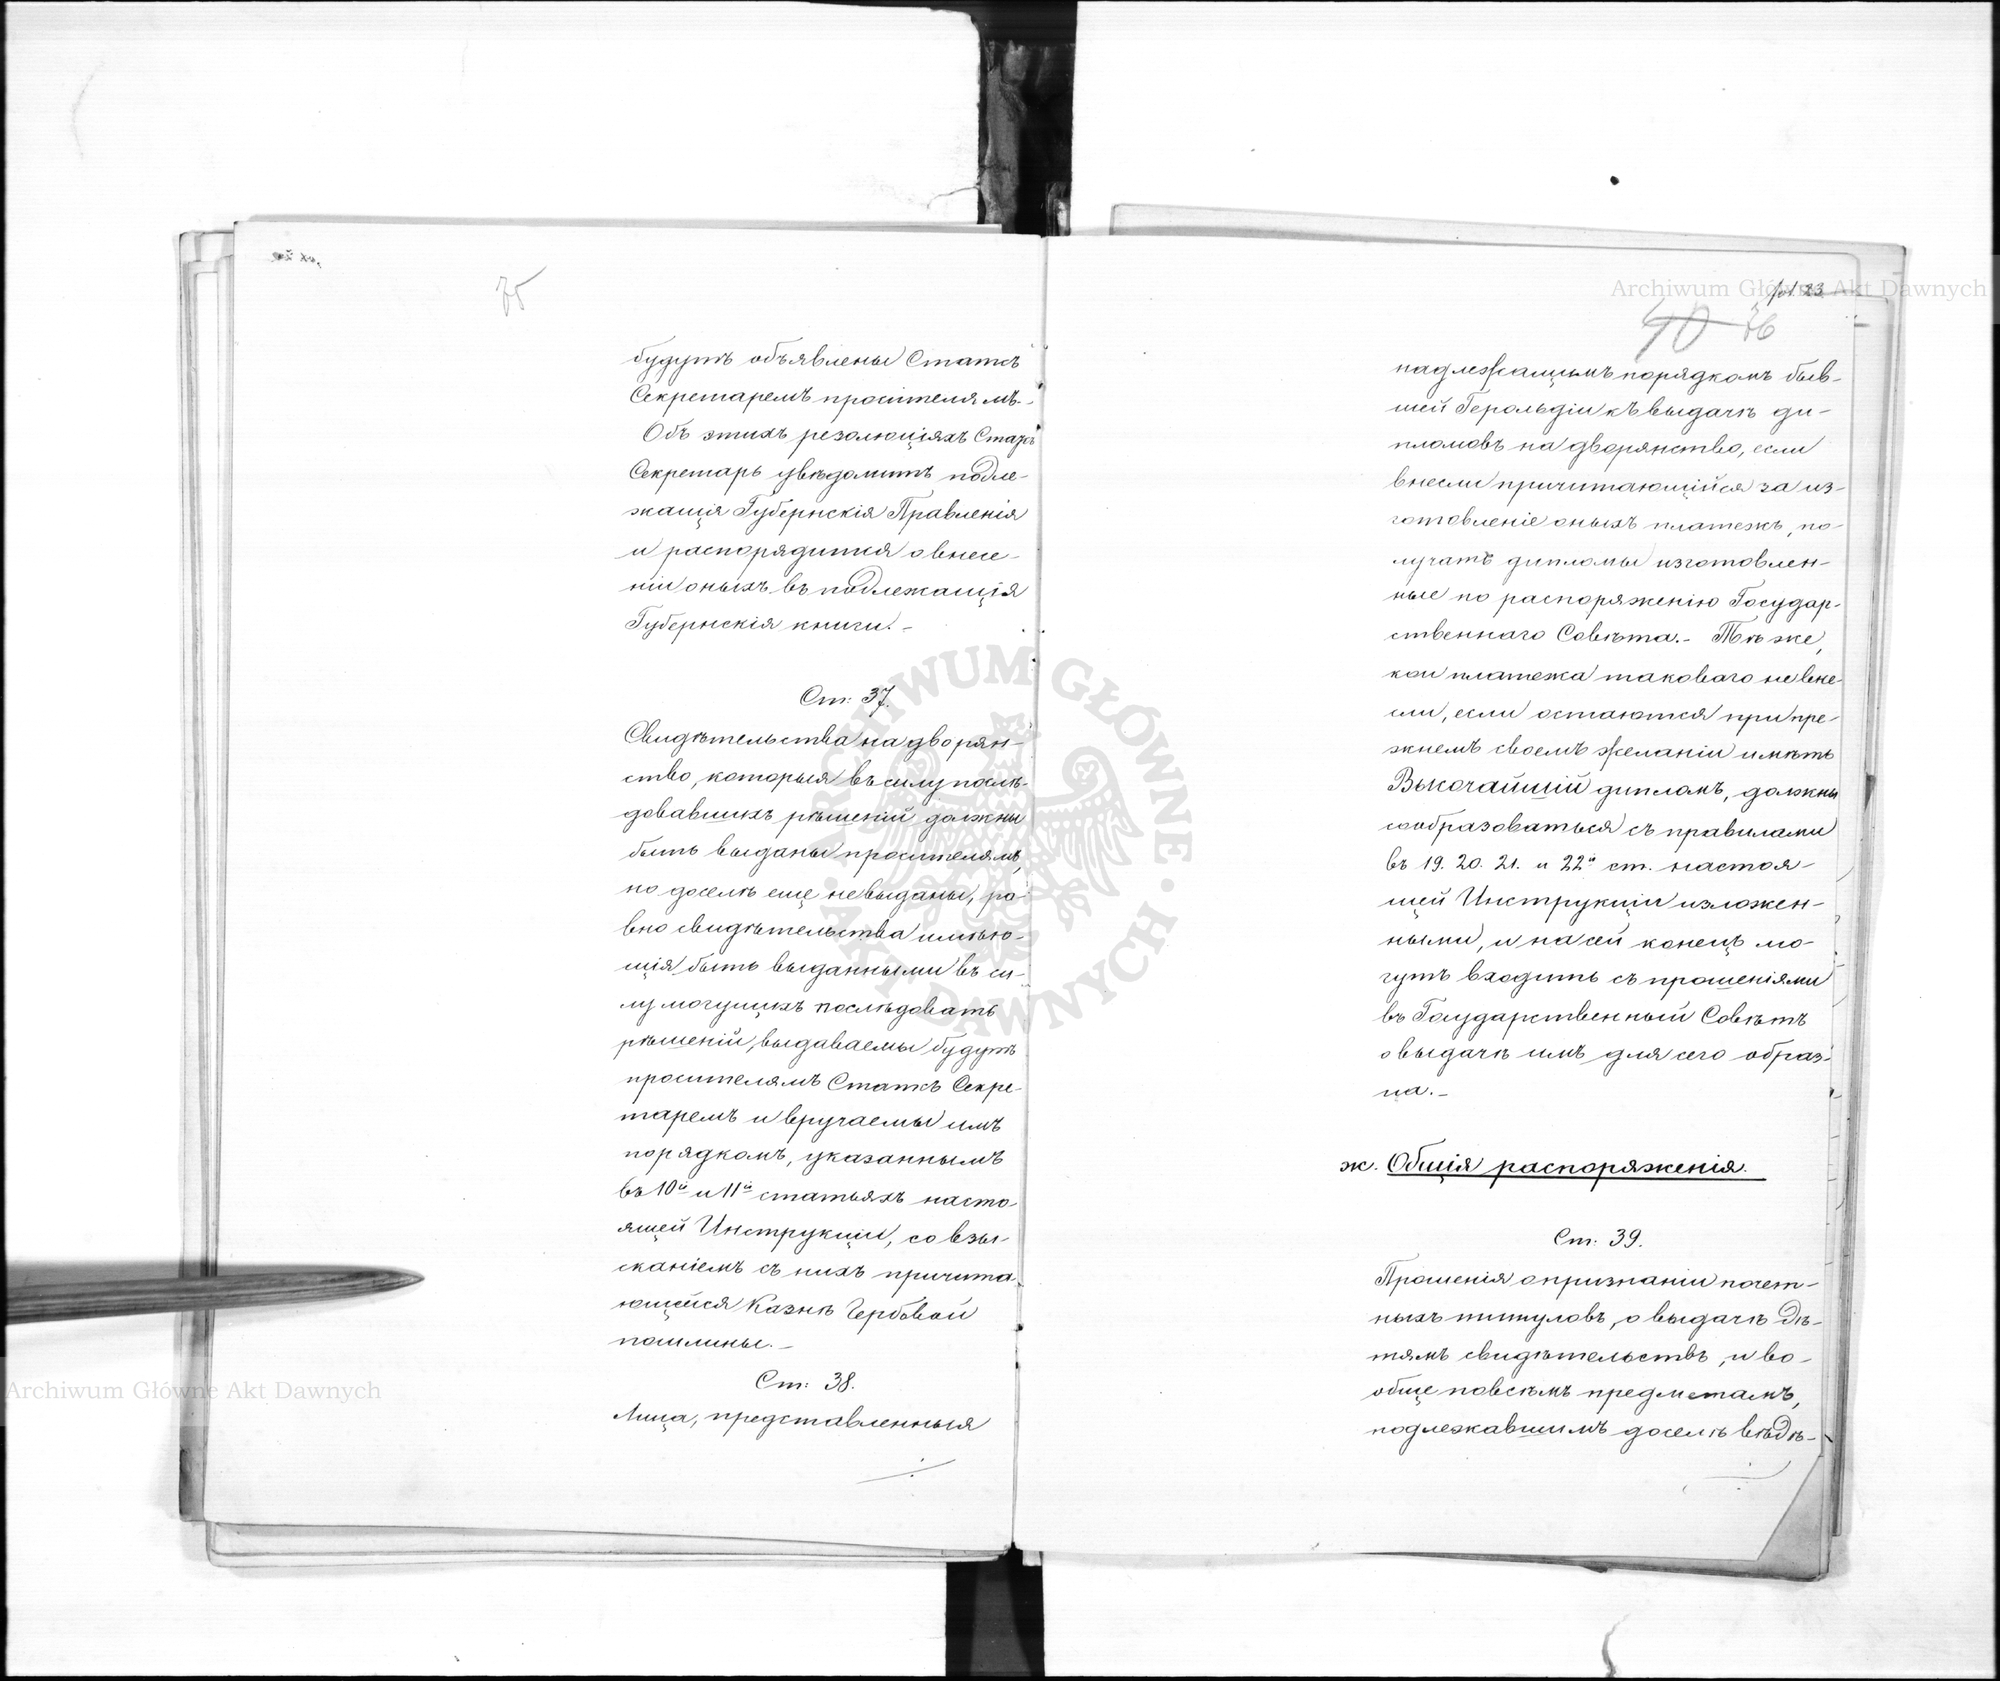 75
будутъ объявлены Статсъ
Секретаремъ просителямъ.-
Объ этихъ резолюціяхъ Статсъ
Секретарь увѣдомитъ подле-
жащія Губернскія Правленія
и распорядится о внесе-
ніи оныхъ въ подлежащія
Губернскія книги.-
Ст: 37.
Свидѣтельства на дворян-
ство, которыя въ силу послѣ-
довавшихъ рѣшеній должны
быть выданы просителямъ,
но доселѣ еще не выданы, ра-
вно свидѣтельства имѣю-
щія быть выданными въ си-
лу могущихъ послѣдовать
рѣшеній, выдаваемы будутъ
просителямъ Статсъ Секре-
таремъ и вручаемы имъ
порядкомъ, указаннымъ
въ 10й и 11й статьяхъ насто-
ящей Инструкціи, со взы-
сканіемъ съ нихъ причита-
ющейся Казнѣ Гербовой
пошлины.-
Ст: 38.
Лица, представленныя
fol. 23
40 76
надлежащимъ порядкомъ быв-
шей Герольдіи къ выдачѣ ди-
пломовъ на дворянство, если
внесли причитающійся за из-
готовленіе оныхъ платежъ, по-
лучатъ дипломы изготовлен-
ные по распоряженію Государ-
ственнаго Совѣта.- Тѣ же,
кои платежа таковаго не вне-
сли, если остаются при пре-
жнемъ своемъ желаніи имѣть
Высочайшій дипломъ, должны
сообразоваться съ правилами
въ 19. 20. 21. и 22й ст. настоя-
щей Инструкціи изложен-
ными, и на сей конецъ мо-
гутъ входить съ прошеніями
въ Государственный Совѣтъ
о выдачѣ имъ для сего образ-
ца.-
ж. Общія распоряженія.
Ст: 39.
Прошенія о признаніи почет-
ныхъ титуловъ, о выдачѣ дѣ-
тямъ свидѣтельствъ, и во-
обще по всѣмъ предметамъ,
подлежавшимъ доселѣ вѣдѣ-
Archiwum Główne Akt Dawnych
Archiwum Główne Akt Dawnych
ARCHIWUM GŁÓWNE AKT DAWNYCH